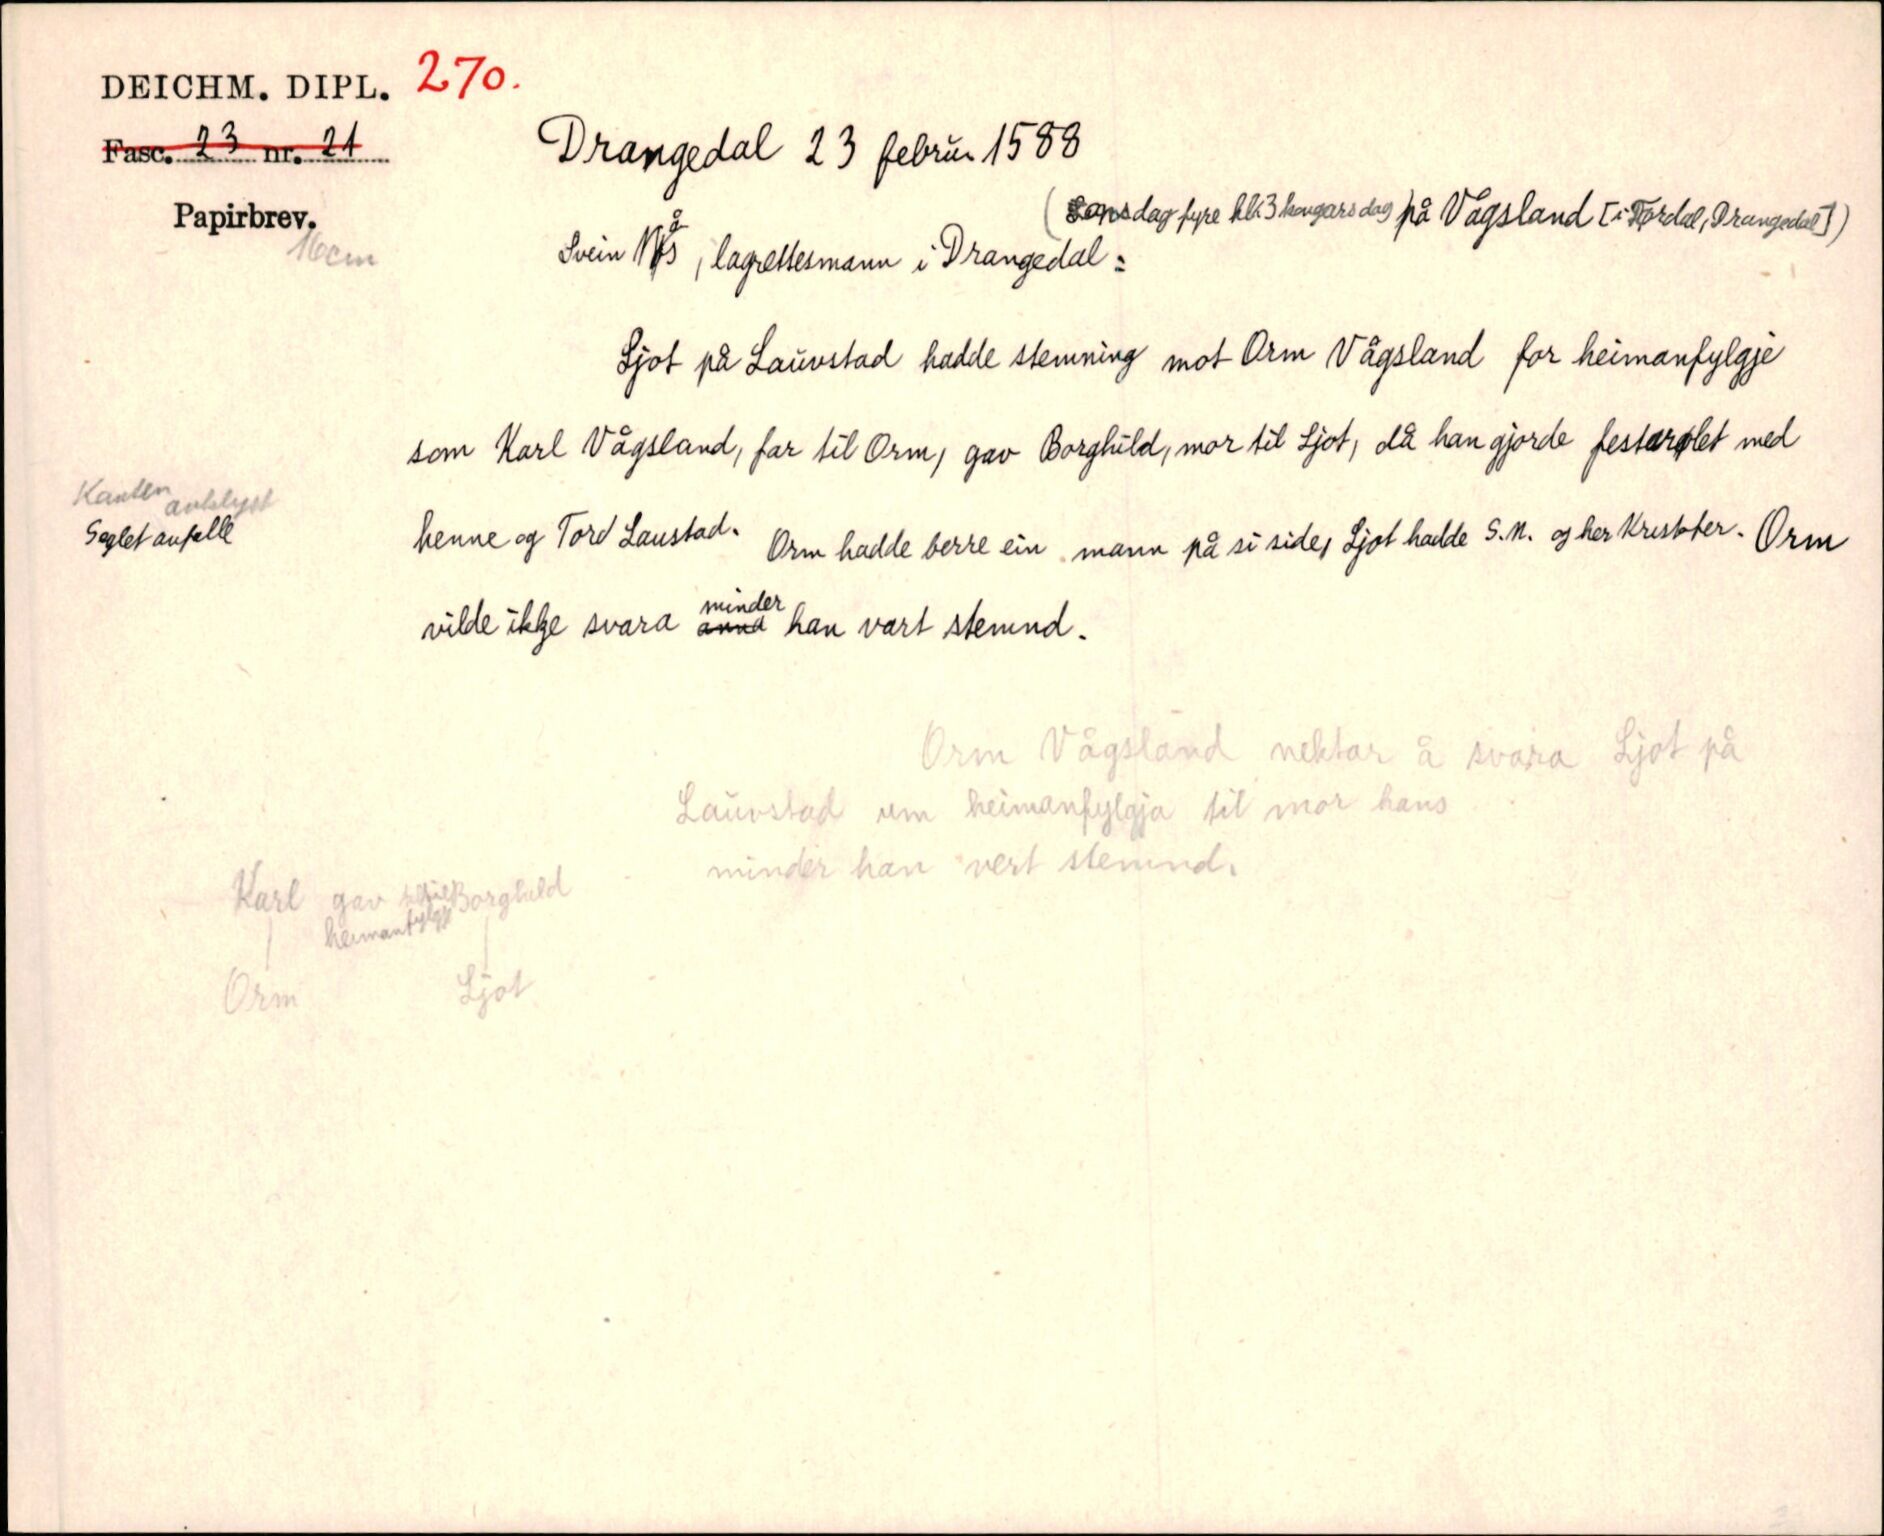 DEICHM. DIPL. 270.
Fasc. 23 nr. 21
Papirbrev.
16cm
Drangedal 23 februar 1588
(dag fyre hl. 3 kongars dag) på Vågsland [i Tørdal, Drangedal])
Svein Nås, lagrettesmann i Drangedal:
Ljot på Lauvstad hadde stemning mot Orm Vågsland for heimanfylgje
som Karl Vågsland, far til Orm, gav Borghild, mor til Ljot, då han gjorde festarølet med
Kanten avklypt
Seglet avfalle
henne og Tord Laustad. Orm hadde berre ein mann på si side, Ljot hadde S.N. og her Kristofer. Orm
vilde ikkje svara anna minder han vart stemnd.
Orm Vågsland nektar å svara Ljot på
Lauvstad um heimanfylgja til mor hans
minder han vert stemnd.
Karl gav Borghild
heimanfylgje
Orm Ljot